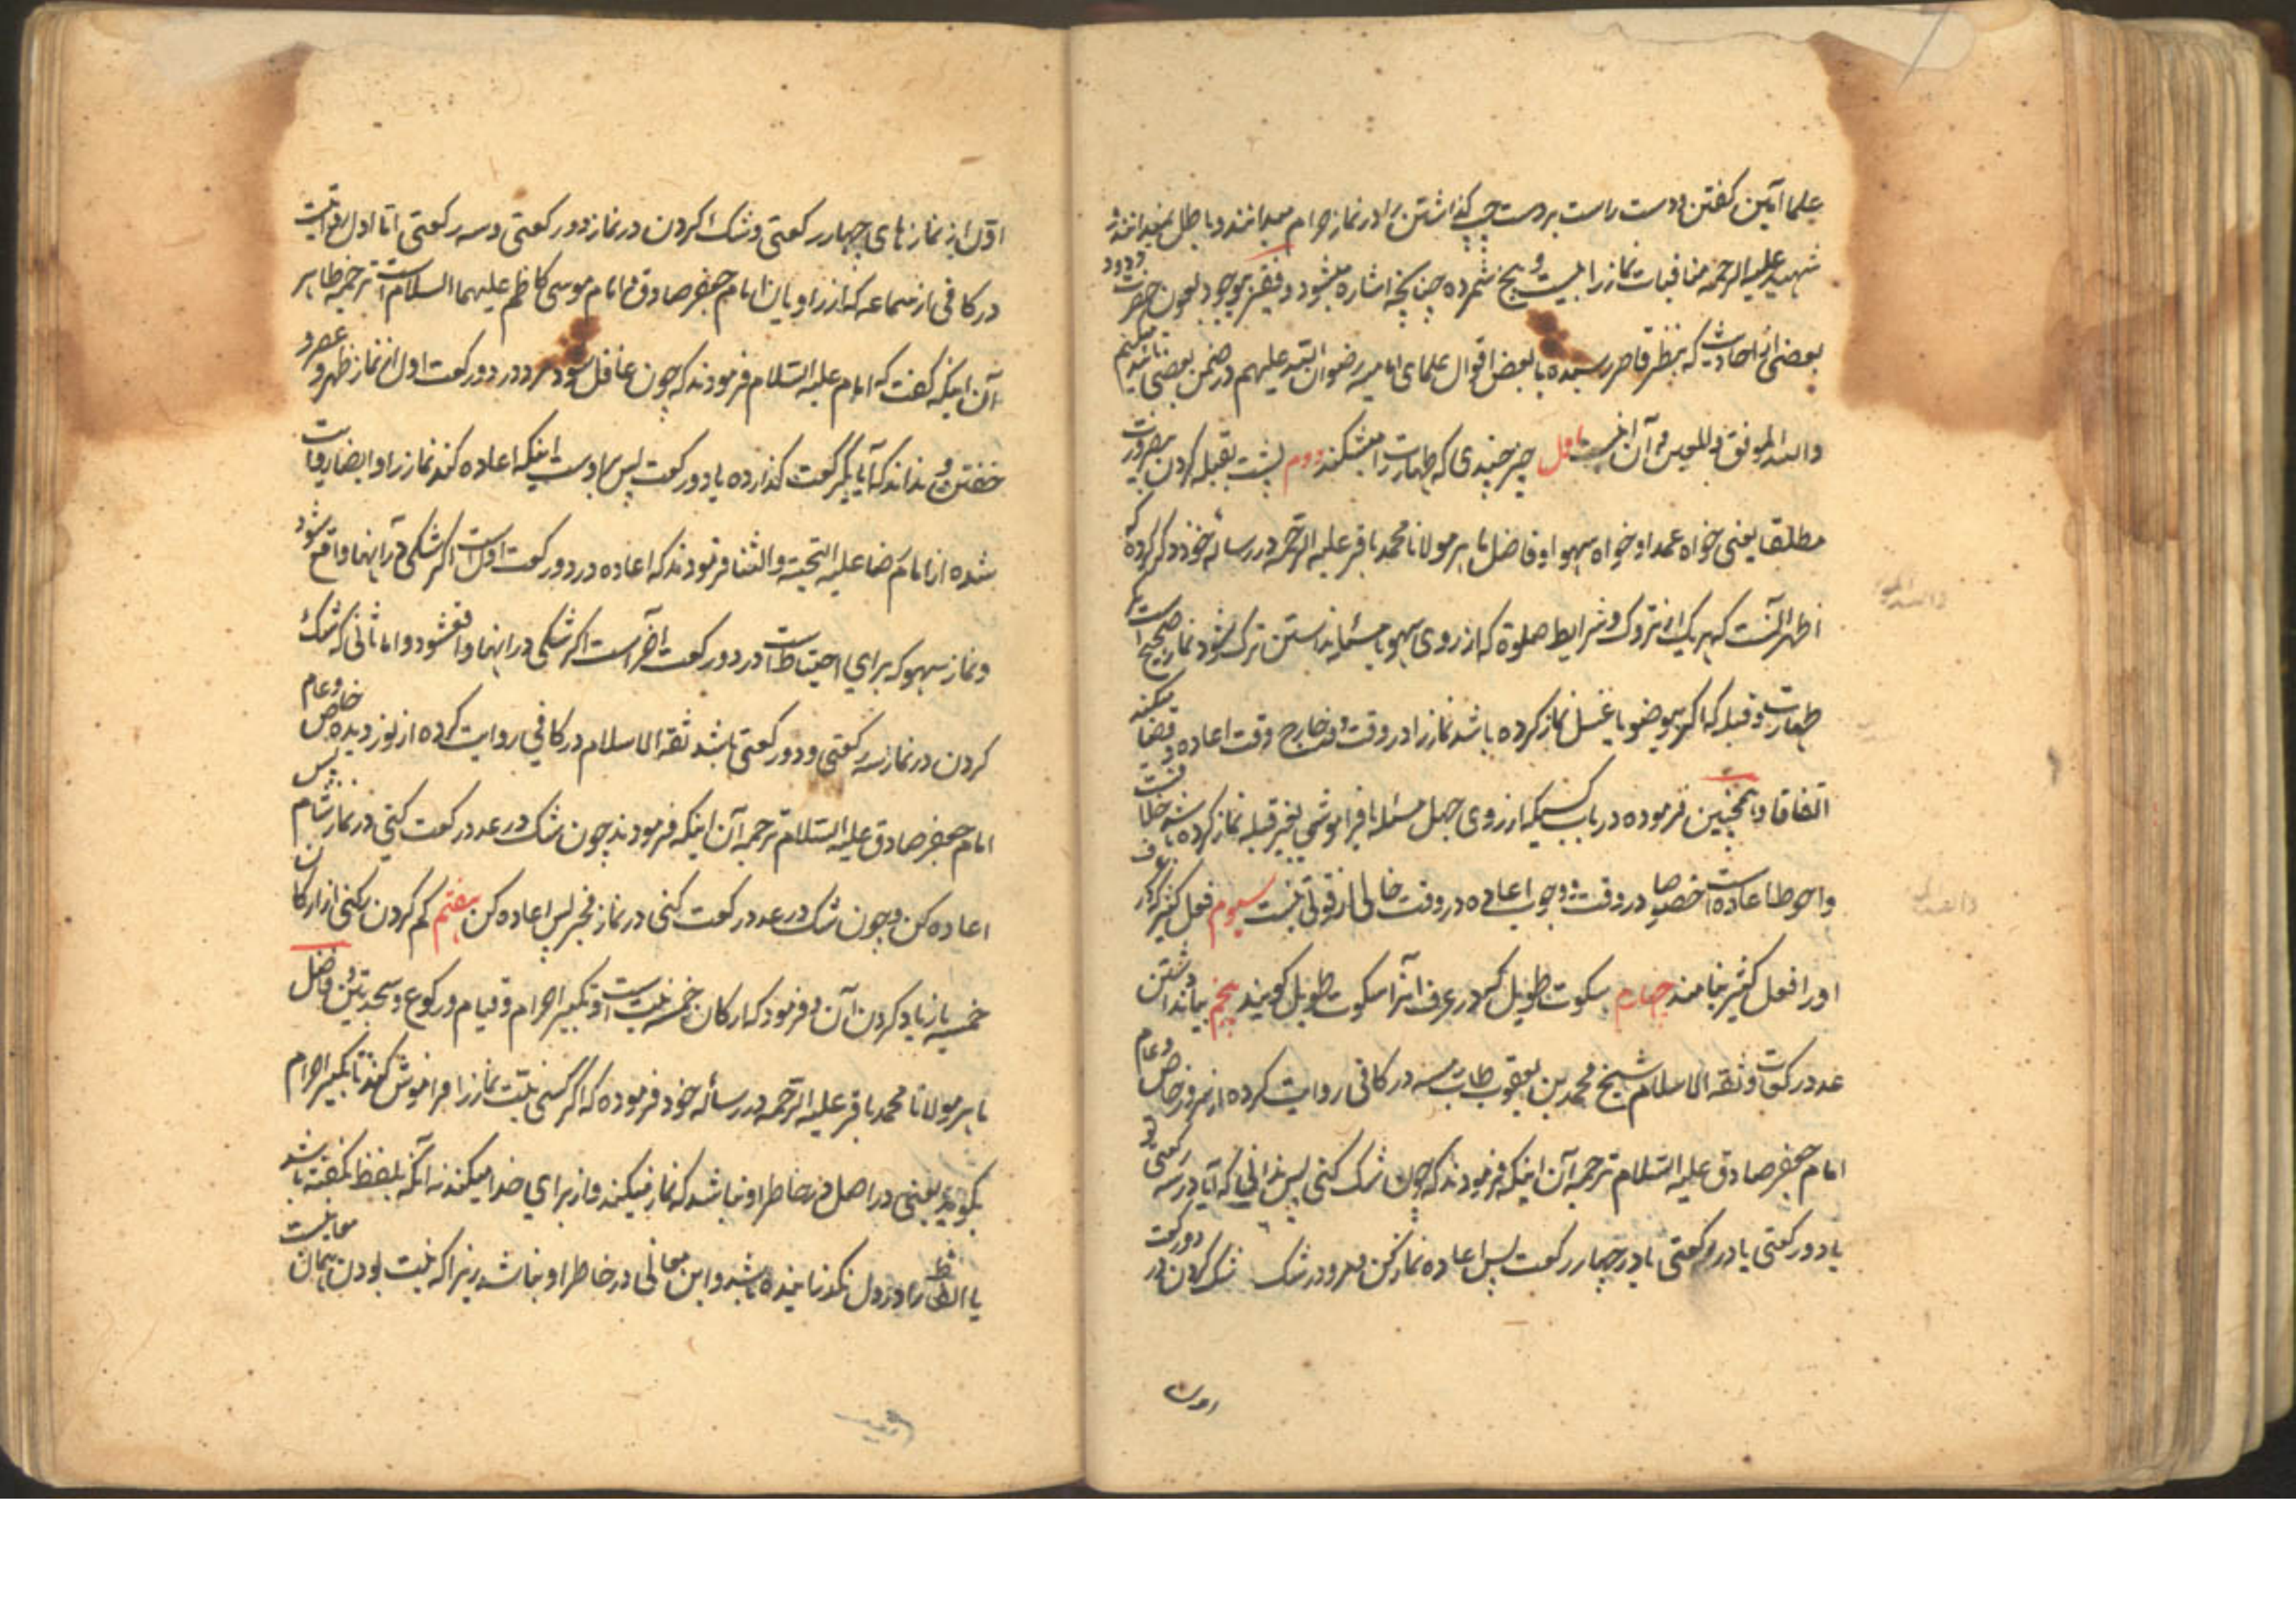 علما آمین گفتن و دست راست بر دست چپ گذاشتن را در نماز حرام میدانند و باطل نمیدانند و
شهید علیه الرحمه منافیات نماز را بیست و پنج شمرده چنانچه اشاره میشود و فقیر بعون حضرت ودود
بعضی از احادیث که بنظر قاصر رسیده با بعض اقوال علمای امامیه رضوان الله علیهم در ضمن بعضی
والله الموفق والمعین و آن اینست اول چیز چندی که طهارت را میشکند دوم پشت بقبله کردن
مطلقا یعنی خواه عمدا و خواه سهوا و فاضل ماهر مولانا محمد باقر علیه الرحمه در رساله خود ذکر کرده که
اظهر آنست که هر یک از تروک و شرایط صلوة که از روی سهو یا مسئله ندانستن ترک شود نماز صحیح است مگر
طهارت و قبله که اگر بیوضو یا غسل نماز کرده باشد نماز را در وقت و خارج وقت اعاده و قضا میکند
اتفاقا و همچنین فرموده در باب کسیکه از روی جهل مسئله یا فراموشی بغیر قبله نماز کرده باشد
واحوط اعاده است خصوصا در وقت و وجوب اعاده در وقت خالی از قوتی نیست سیوم فعل کثیر که در عرف
او را فعل کثیر نامند چهارم سکوت طویل که در عرف آنرا سکوت طویل گویند پنجم
عدد رکعات و ثقه الاسلام شیخ محمد بن یعقوب طاب رمسه در کافی روایت کرده از خاص و عام
امام جعفر صادق علیه السلام ترجمه آن اینکه فرمودند که چون شک کنی پس ندانی که آیا در سه رکعتی
یا دو رکعتی یا در یک رکعتی یا در چهار رکعت پس اعاده نماز کن و شک کردن در دو رکعت
اول از نمازهای چهار رکعتی و شک کردن در نماز دو رکعتی و سه رکعتی اما اول روایت
در کافی از سماعه که از راویان امام جعفر صادق و امام موسی کاظم علیهما السلام است ترجمه ظاهر
آن اینکه گفت که امام علیه السلام فرمودند که چون غافل شود مرد در دو رکعت اول از نماز ظهر و عصر و
خفتن و نداند که آیا یک رکعت گذارده یا دو رکعت پس بر اوست اینکه اعاده کند نماز را و ایضا روایت
شده از امام رضا علیه التحیة والثنا فرمودند که اعاده در دو رکعت اول است اگر شکی در آنها واقع شود
و نماز سهو که برای احتیاط است در دو رکعت آخر است اگر شکی در اینها واقع شود و اما ثانی که شک
کردن در نماز سه رکعتی و دو رکعتی باشد ثقه الاسلام در کافی روایت کرده از نور دیده خاص و عام
امام جعفر صادق علیه السلام ترجمه آن اینکه فرمودند چون شک در عدد رکعت کنی در نماز شام پس
اعاده کن و چون شک در عدد رکعت کنی در نماز فجر پس اعاده کن هفتم کم کردن رکنی از ارکان
خمسه یا زیاد کردن آن و فرمود که ارکان خمسه نیت است و تکبیر احرام و قیام و رکوع و سجدتین و فاضل
ماهر مولانا محمد باقر علیه الرحمه در رساله خود فرموده که اگر کسی نیت نماز را فراموش کند تا تکبیر احرام
بگوید یعنی در اصل در خاطر او نباشد که نماز میکند و از برای خدا میکند نه آنکه بلفظ نگفته باشد
یا الفاظ را در دل نگذرانیده باشد و این معانی در خاطر او نباشد زیرا که نیت بودن همان معانیست